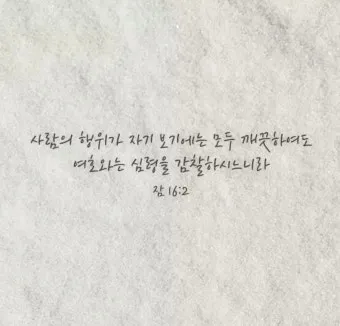 사람의 행위가 자기 보기에는 모두 깨끗하여도
여호와는 심령을 감찰하시느니라
잠 16:2